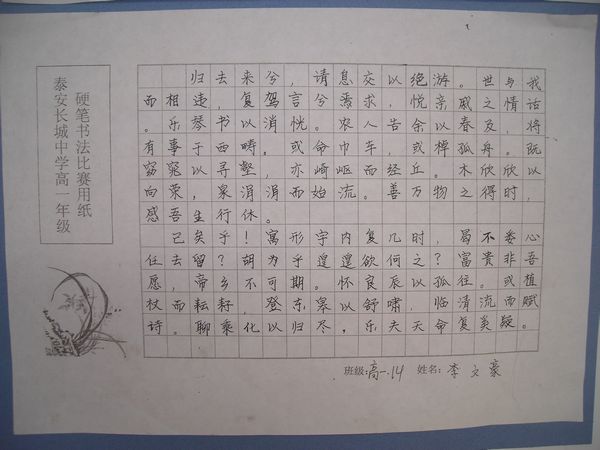 硬笔书法比赛用纸
泰安长城中学高一年级
归去来兮，请息交以绝游。世与我
而相违，复驾言兮焉求，悦亲戚之情话
。乐琴书以消忧。农人告余以春及，将
有事于西畴。或命巾车，或棹孤舟。既
窈窕以寻壑，亦崎岖而经丘。木欣欣以
向荣，泉涓涓而始流。善万物之得时，
感吾生行休。
已矣乎！寓形宇内复几时，曷不委心
任去留？胡为乎遑遑欲何之？富贵非吾
愿，帝乡不可期。怀良辰以孤往。或植
杖而耘耔，登东皋以舒啸，临清流而赋
诗。聊乘化以归尽，乐夫天命复奚疑。
班级:高一.14 姓名:李文豪